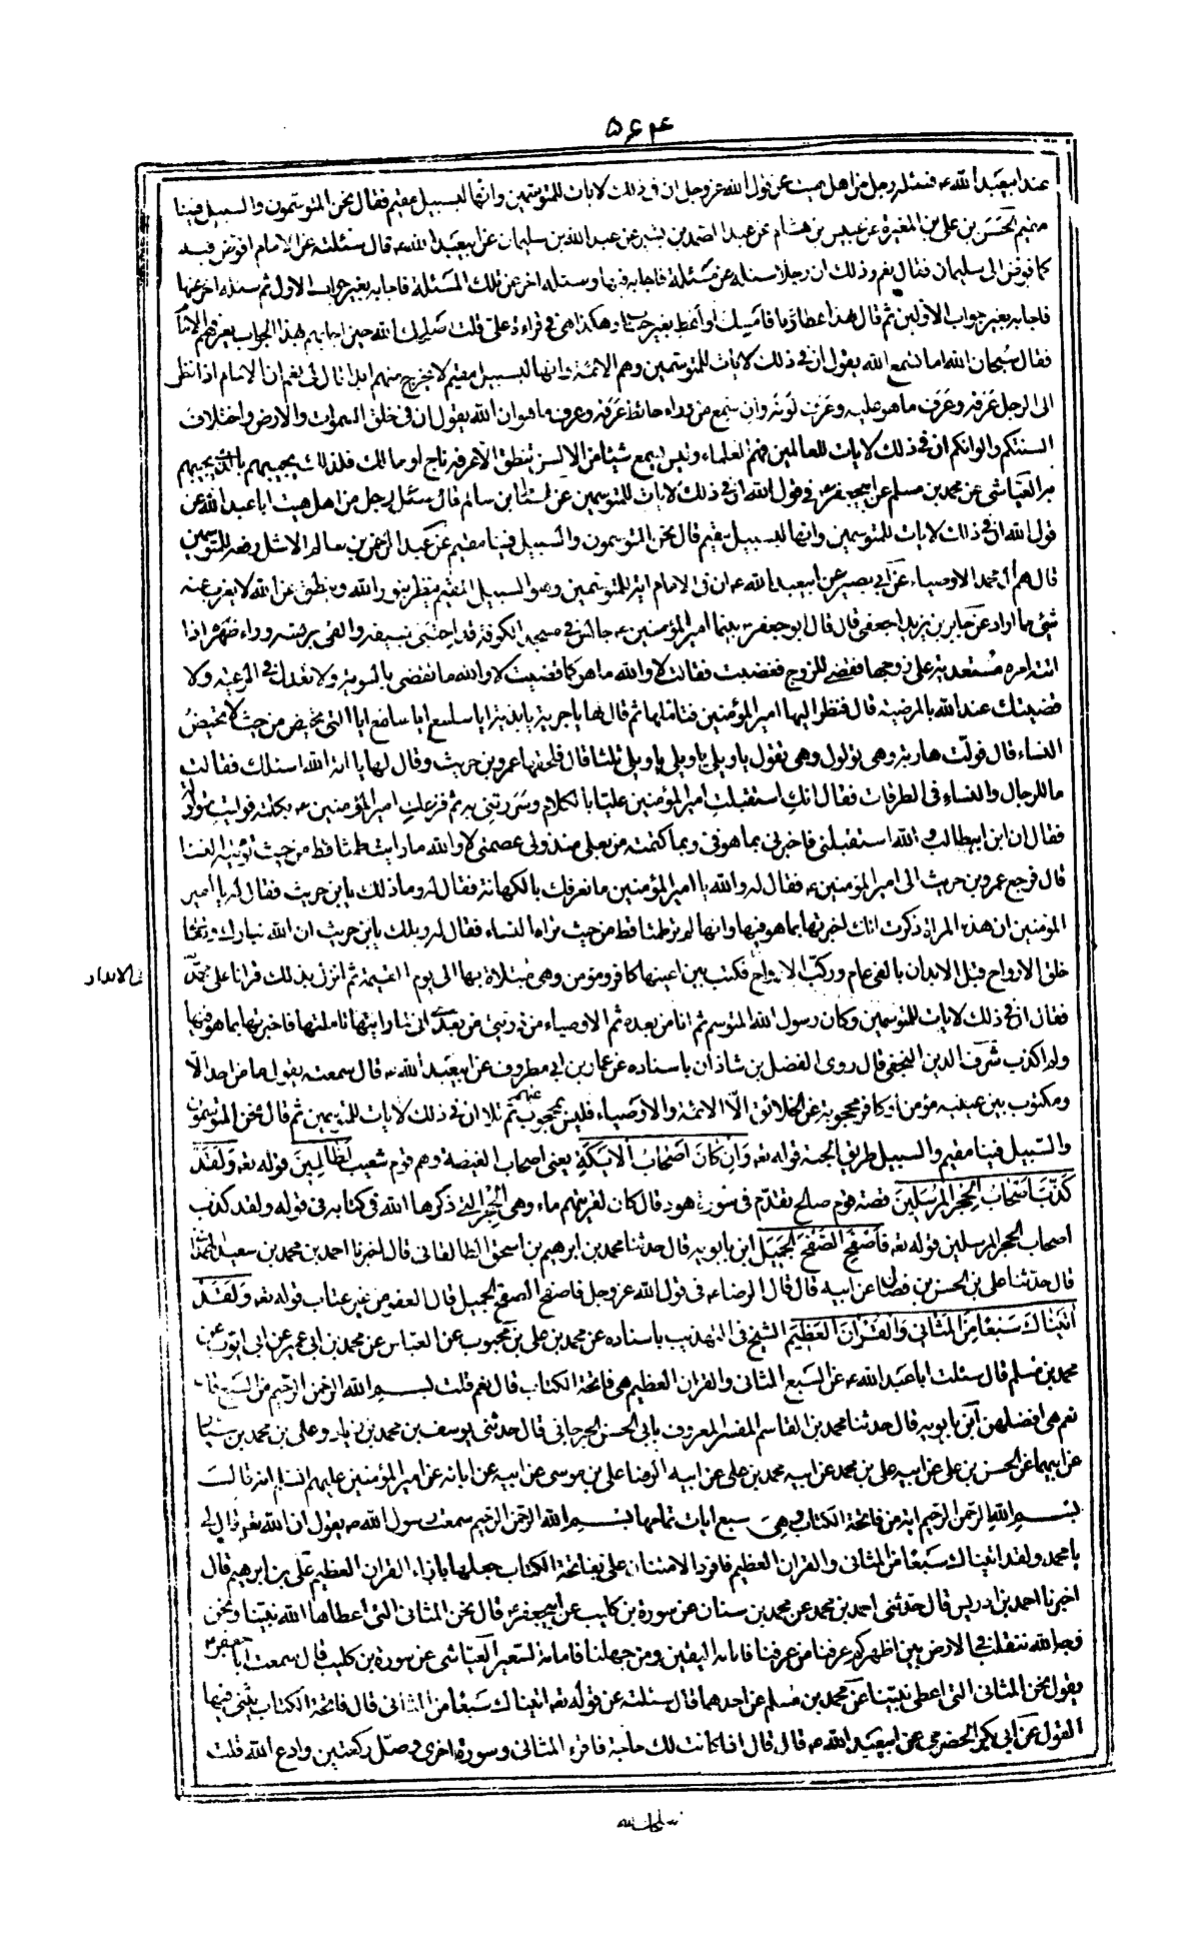 ۵۶۴
عند ابيعبد الله ع فسئله رجل من اهل هيت عن قول الله عز وجل ان فى ذلك لايات للمتوسمين وانها لبسبيل مقيم فقال نحن المتوسمون والسبيل فينا
مقيم الحسن بن على بن المغيرة عن عبيس بن هشام عن عبد الصمد بن بشير عن عبد الله بن سليمان عن ابيعبد الله ع قال سئلته عن الامام افوض اليه
كما فوض الى سليمان فقال نعم وذلك ان رجلا سئله عن مسئلة فاجابه فيها وسئله اخر عن تلك المسئلة فاجابه بغير جواب الاول ثم سئله اخر عنها
فاجابه بغير جواب الاولين ثم قال هذا عطاؤنا فامسك او اعط بغير حساب وهكذا هى فى قراءة على قلت اصلحك الله حين اجابهم بهذا الجواب يعرفهم الامام
فقال سبحان الله اما تسمع الله يقول ان فى ذلك لايات للمتوسمين وهم الائمة وانها لبسبيل مقيم لا يخرج منهم ابدا ثم قال نعم ان الامام اذا نظر
الى الرجل عرفه وعرف ما هو عليه وعرف لونه وان سمع من وراء حائط عرفه وعرف ما هو ان الله يقول ان فى خلق السموات والارض واختلاف
السنتكم والوانكم ان فى ذلك لايات للعالمين فهم العلماء وليس يسمع شيئا من الالسن تنطق الا عرفه ناج او هالك فلذلك يجيبهم بالذى يجيبهم
العياشى عن محمد بن مسلم عن ابيجعفر ع فى قول الله ان فى ذلك لايات للمتوسمين عن اسباط بن سالم قال سئل رجل من اهل هيت ابا عبد الله عن
قول الله ان فى ذلك لايات للمتوسمين وانها لبسبيل مقيم قال نحن المتوسمون والسبيل فينا مقيم عن عبد الرحمن بن سالم الاشل رفعه للمتوسمين
قال هم ال محمد الاوصياء عن ابى بصير عن ابيعبد الله ع ان فى الامام اية للمتوسمين وهو السبيل المقيم ينظر بنور الله وينطق عن الله لا يعزب عنه
شيئ مما اراد عن جابر بن يزيد الجعفى قال قال ابو جعفر ع بينما امير المؤمنين ع جالس فى مسجد الكوفة قد احتبى بسيفه والقى برنسه وراء ظهره اذا
اتته امرءة مستعدية على زوجها فقضى للزوج فغضبت فقالت لا والله ما هو كما قضيت لا والله ما تقضى بالسوية ولا تعدل فى الرعية ولا
قضيتك عند الله بالمرضية قال فنظر اليها امير المؤمنين فتاملها ثم قال لها يا جرية يا بذية ايا سلسع ايا سلفع ايا التى تحيض من حيث لا تحيض
النساء قال فولت هاربة وهى تولول وهى تقول يا ويلى يا ويلى يا ويلى ثلثا قال فلحقها عمرو بن حريث وقال لها يا امة الله اسئلك فقالت
ما للرجال والنساء فى الطرقات فقال انك استقبلت امير المؤمنين عليا بالكلام وسررتنى به ثم قرعك امير المؤمنين ع بكلمة فوليت تولول
فقال ان ابن ابيطالب والله استقبلنى فاخبرنى بما هو فى وبما كتمته من بعلى منذ ولى عصمتى لا والله ما رايت طمثا قط من حيث ترينه النساء
قال فرجع عمرو بن حريث الى امير المؤمنين ع فقال له والله يا امير المؤمنين ما نعرفك بالكهانة فقال له وما ذلك يابن حريث فقال له يا امير
المؤمنين ان هذه المراة ذكرت انك اخبرتها بما هو فيها وانها لم تر طمثا قط من حيث تراه النساء فقال له ويلك يابن حريث ان الله تبارك وتعالى
خلق الارواح قبل الابدان بالفى عام وركب الارواح فكتب بين اعينها كافر ومؤمن وهى مبتلاة بها الى يوم القيمة ثم انزل بذلك قرانا على محمد
فى الابدان
فقال ان فى ذلك لايات للمتوسمين وكان رسول الله المتوسم ثم انا من بعده ثم الاوصياء من ذريتى من بعدى انى لما رايتها تاملتها فاخبرتها بما هو فيها
ولم اكذب شرف الدين النجفى قال روى الفضل بن شاذان باسناده عن عمار بن ابى مطروف عن ابيعبد الله ع قال سمعته يقول ما من احد الا
ومكتوب بين عينيه مؤمن او كافر محجوبة عن الخلائق الا الائمة والاوصياء فليس بمحجوب عنهم ثم تلا ان فى ذلك لايات للمتوسمين ثم قال نحن المتوسمون
والسبيل فينا مقيم والسبيل طريق الجنة قوله تعه وان كان اصحاب الايكة يعنى اصحاب الغيضة وهم قوم شعيب لظالمين قوله تعه ولقد
كذب اصحاب الحجر المرسلين قصة قوم صالح تقدم فى سورة هود قال كان لقريتهم ماء وهى الحجر التى ذكرها الله فى كتابه فى قوله ولقد كذب
اصحاب الحجر المرسلين قوله تعه فاصفح الصفح الجميل ابن بابويه قال حدثنا محمد بن ابرهيم بن اسحق الطالقانى قال اخبرنا احمد بن محمد بن سعيد الهمدانى
قال حدثنا على بن الحسن بن فضال عن ابيه قال قال الرضا ع فى قول الله عز وجل فاصفح الصفح الجميل قال العفو من غير عتاب قوله تعه ولقد
اتيناك سبعا من المثانى والقران العظيم الشيخ فى التهذيب باسناده عن محمد بن على بن محبوب عن العباس عن محمد بن ابى عمير عن ابى ايوب عن
محمد بن مسلم قال سئلت ابا عبد الله ع عن السبع المثانى والقران العظيم هى فاتحة الكتاب قال نعم قلت بسم الله الرحمن الرحيم من السبع قال
نعم هى افضلهن ابن بابويه قال حدثنا محمد بن القاسم المفسر المعروف بابى الحسن الجرجانى قال حدثنى يوسف بن محمد بن زياد وعلى بن محمد بن سيار
عن ابيهما عن الحسن بن على عن ابيه على بن محمد عن ابيه محمد بن على عن ابيه الرضا على بن موسى عن ابيه عن ابائه عن امير المؤمنين عليهم السلم انه قال
بسم الله الرحمن الرحيم اية من فاتحة الكتاب وهى سبع ايات تمامها بسم الله الرحمن الرحيم سمعت رسول الله ص يقول ان الله تعه قال لى
يا محمد ولقد اتيناك سبعا من المثانى والقران العظيم فافرد الامتنان على بفاتحة الكتاب جعلها بازاء القران العظيم على بن ابرهيم قال
اخبرنا احمد بن ادريس قال حدثنى احمد بن محمد عن محمد بن سنان عن سورة بن كليب عن ابيجعفر ع قال نحن المثانى التى اعطاها الله نبينا ونحن
وجه الله نتقلب فى الارض بين اظهركم عرفنا من عرفنا فامامه اليقين ومن جهلنا فامامه السعير العياشى عن سورة بن كليب قال سمعت ابا جعفر ع
يقول نحن المثانى التى اعطى نبينا عن محمد بن مسلم عن احدهما قال سئلته عن قوله تعه اتيناك سبعا من المثانى قال فاتحة الكتاب يثنى فيها
القول عن ابى بكر الحضرمى عن ابيعبد الله ع قال قال اذا كانت لك حاجة فاقرء المثانى وسورة اخرى وصل ركعتين وادع الله قلت